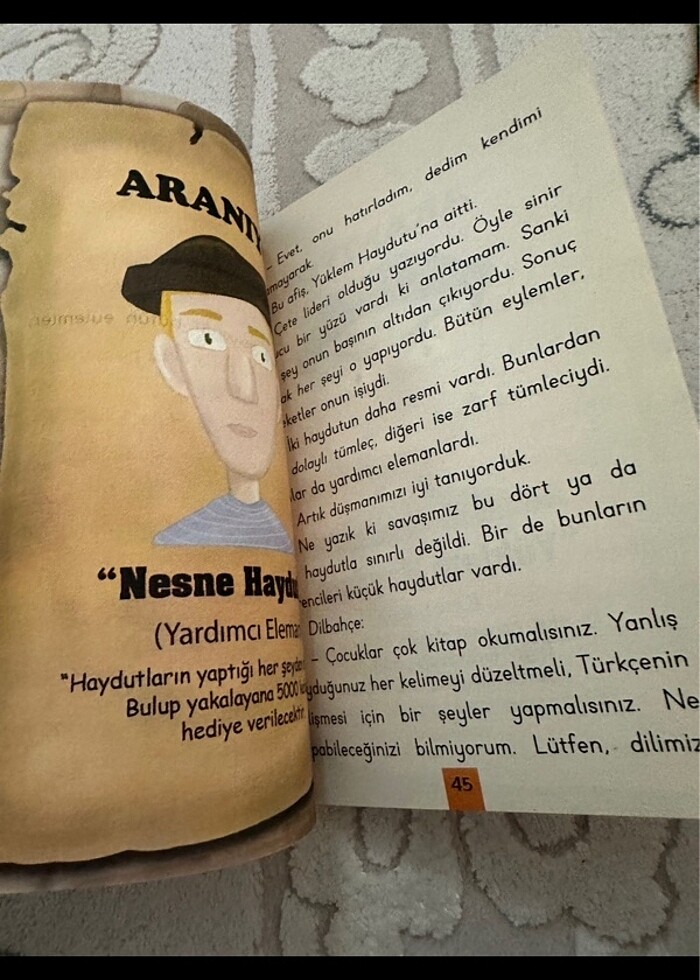 ARANI
"Nesne Haydu
(Yardımcı Eleman
"Haydutların yaptığı her şeyden
Bulup yakalayana 5000
hediye verilecektir.
– Evet, onu hatırladım, dedim kendimi
amayarak.
Bu afiş, Yüklem Haydutu'na aitti.
Çete lideri olduğu yazıyordu. Öyle sinir
ucu bir yüzü vardı ki anlatamam. Sanki
şey onun başının altıdan çıkıyordu. Sonuç
ak her şeyi o yapıyordu. Bütün eylemler,
eketler onun işiydi.
İki haydutun daha resmi vardı. Bunlardan
dolaylı tümleç, diğeri ise zarf tümleciydi.
lar da yardımcı elemanlardı.
Artık düşmanımızı iyi tanıyorduk.
Ne yazık ki savaşımız bu dört ya da
haydutla sınırlı değildi. Bir de bunların
encileri küçük haydutlar vardı.
Dilbahçe:
– Çocuklar çok kitap okumalısınız. Yanlış
yduğunuz her kelimeyi düzeltmeli, Türkçenin
lişmesi için bir şeyler yapmalısınız. Ne
pabileceğinizi bilmiyorum. Lütfen, dilimiz
45